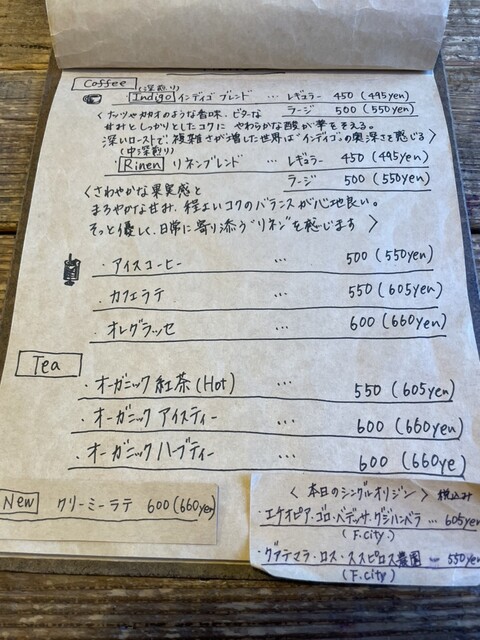 Coffee
(深煎り)
Indigo インディゴ ブレンド … レギュラー 450 (495yen)
ラージ 500 (550yen)
〈ナッツやカカオのような香味、ビターな
甘みとしっかりとしたコクに やわらかな酸が華をそえる。
深いローストで、複雑さが増した世界は"インディゴ"の奥深さを感じる〉
(中深煎り)
・Rinen リネンブレンド … レギュラー 450 (495yen)
ラージ 500 (550yen)
〈さわやかな果実感と
まろやかな甘み、程よいコクのバランスが心地良い。
そっと優しく、日常に寄り添う"リネン"を感じます 〉
・アイスコーヒー … 500 (550yen)
・カフェラテ … 550 (605yen)
・オレグラッセ … 600 (660yen)
Tea
・オーガニック 紅茶 (Hot) … 550 (605yen)
・オーガニック アイスティー … 600 (660yen)
・オーガニック ハーブティー … 600 (660ye)
New クリーミーラテ 600 (660yen)
〈 本日のシングルオリジン 〉 税込み
・エチオピア・ゴロ・ベデッサ・グジハンベラ … 605yen
(F.city.)
・グァテマラ・ロス・ススピロス農園 … 550yen
(F.city)